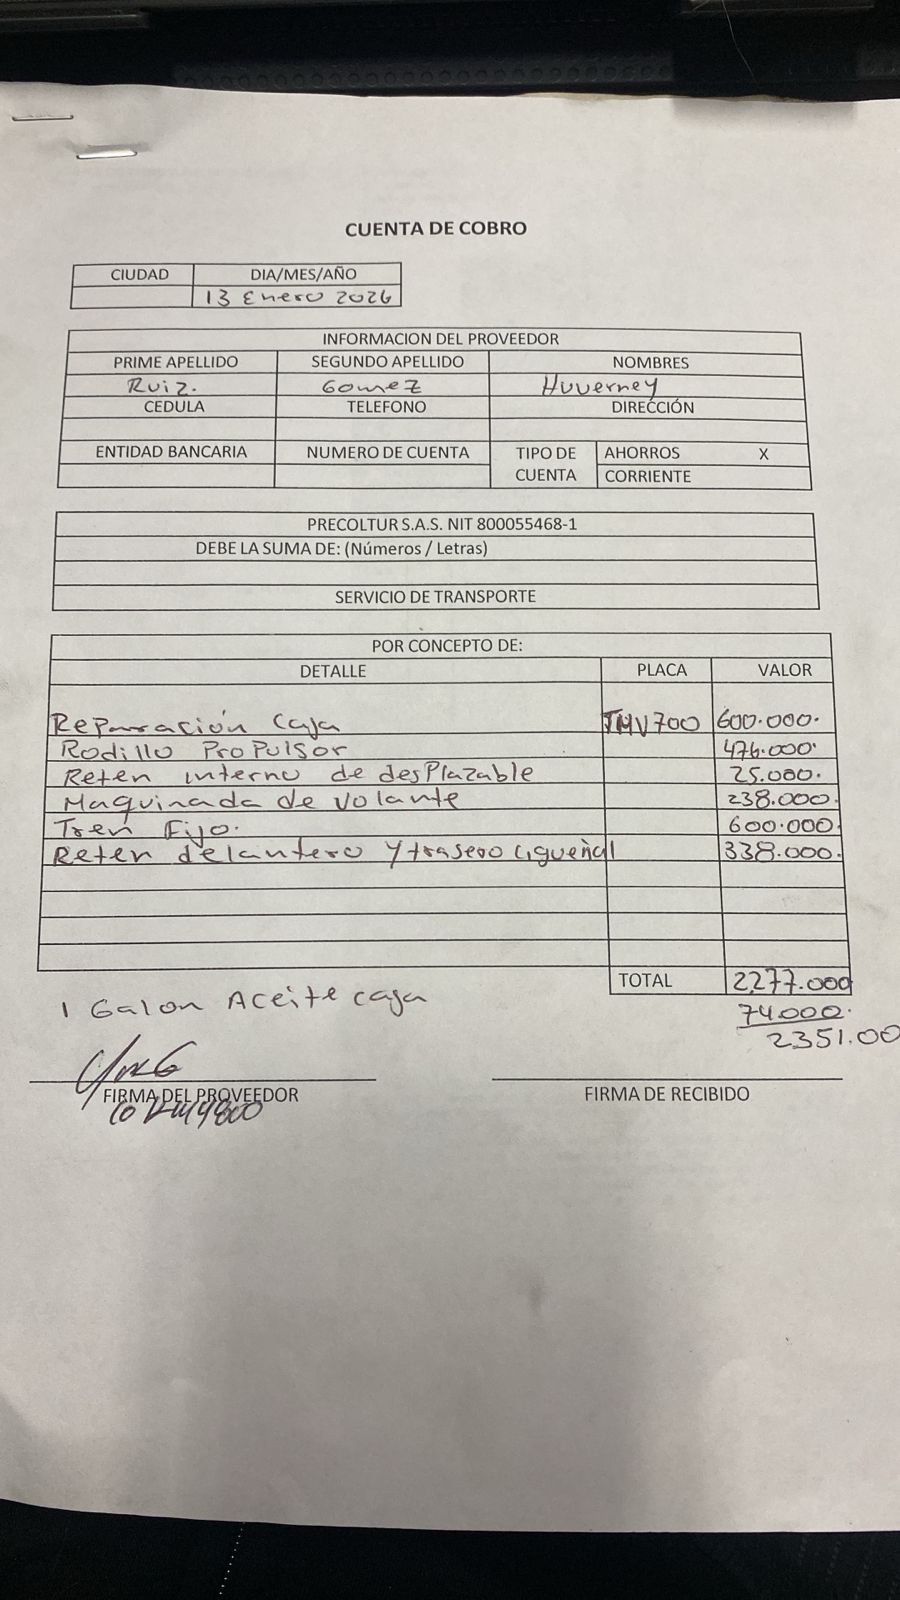 CUENTA DE COBRO
CIUDAD DIA/MES/AÑO
13 Enero 2026
INFORMACION DEL PROVEEDOR
PRIME APELLIDO SEGUNDO APELLIDO NOMBRES
Ruiz. Gomez Huverney
CEDULA TELEFONO DIRECCIÓN
ENTIDAD BANCARIA NUMERO DE CUENTA TIPO DE CUENTA AHORROS X
CORRIENTE
PRECOLTUR S.A.S. NIT 800055468-1
DEBE LA SUMA DE: (Números / Letras)
SERVICIO DE TRANSPORTE
POR CONCEPTO DE:
DETALLE PLACA VALOR
Reparación Caja 600.000.
Rodillo Propulsor 476.000.
Reten interno de desplazable 25.000.
Maquinada de volante 238.000.
Tren Fijo. 600.000.
Reten delantero y trasero cigueñal 338.000.
TOTAL 2,277.000
1 Galon Aceite caja 74.000.
2351.00
FIRMA DEL PROVEEDOR FIRMA DE RECIBIDO